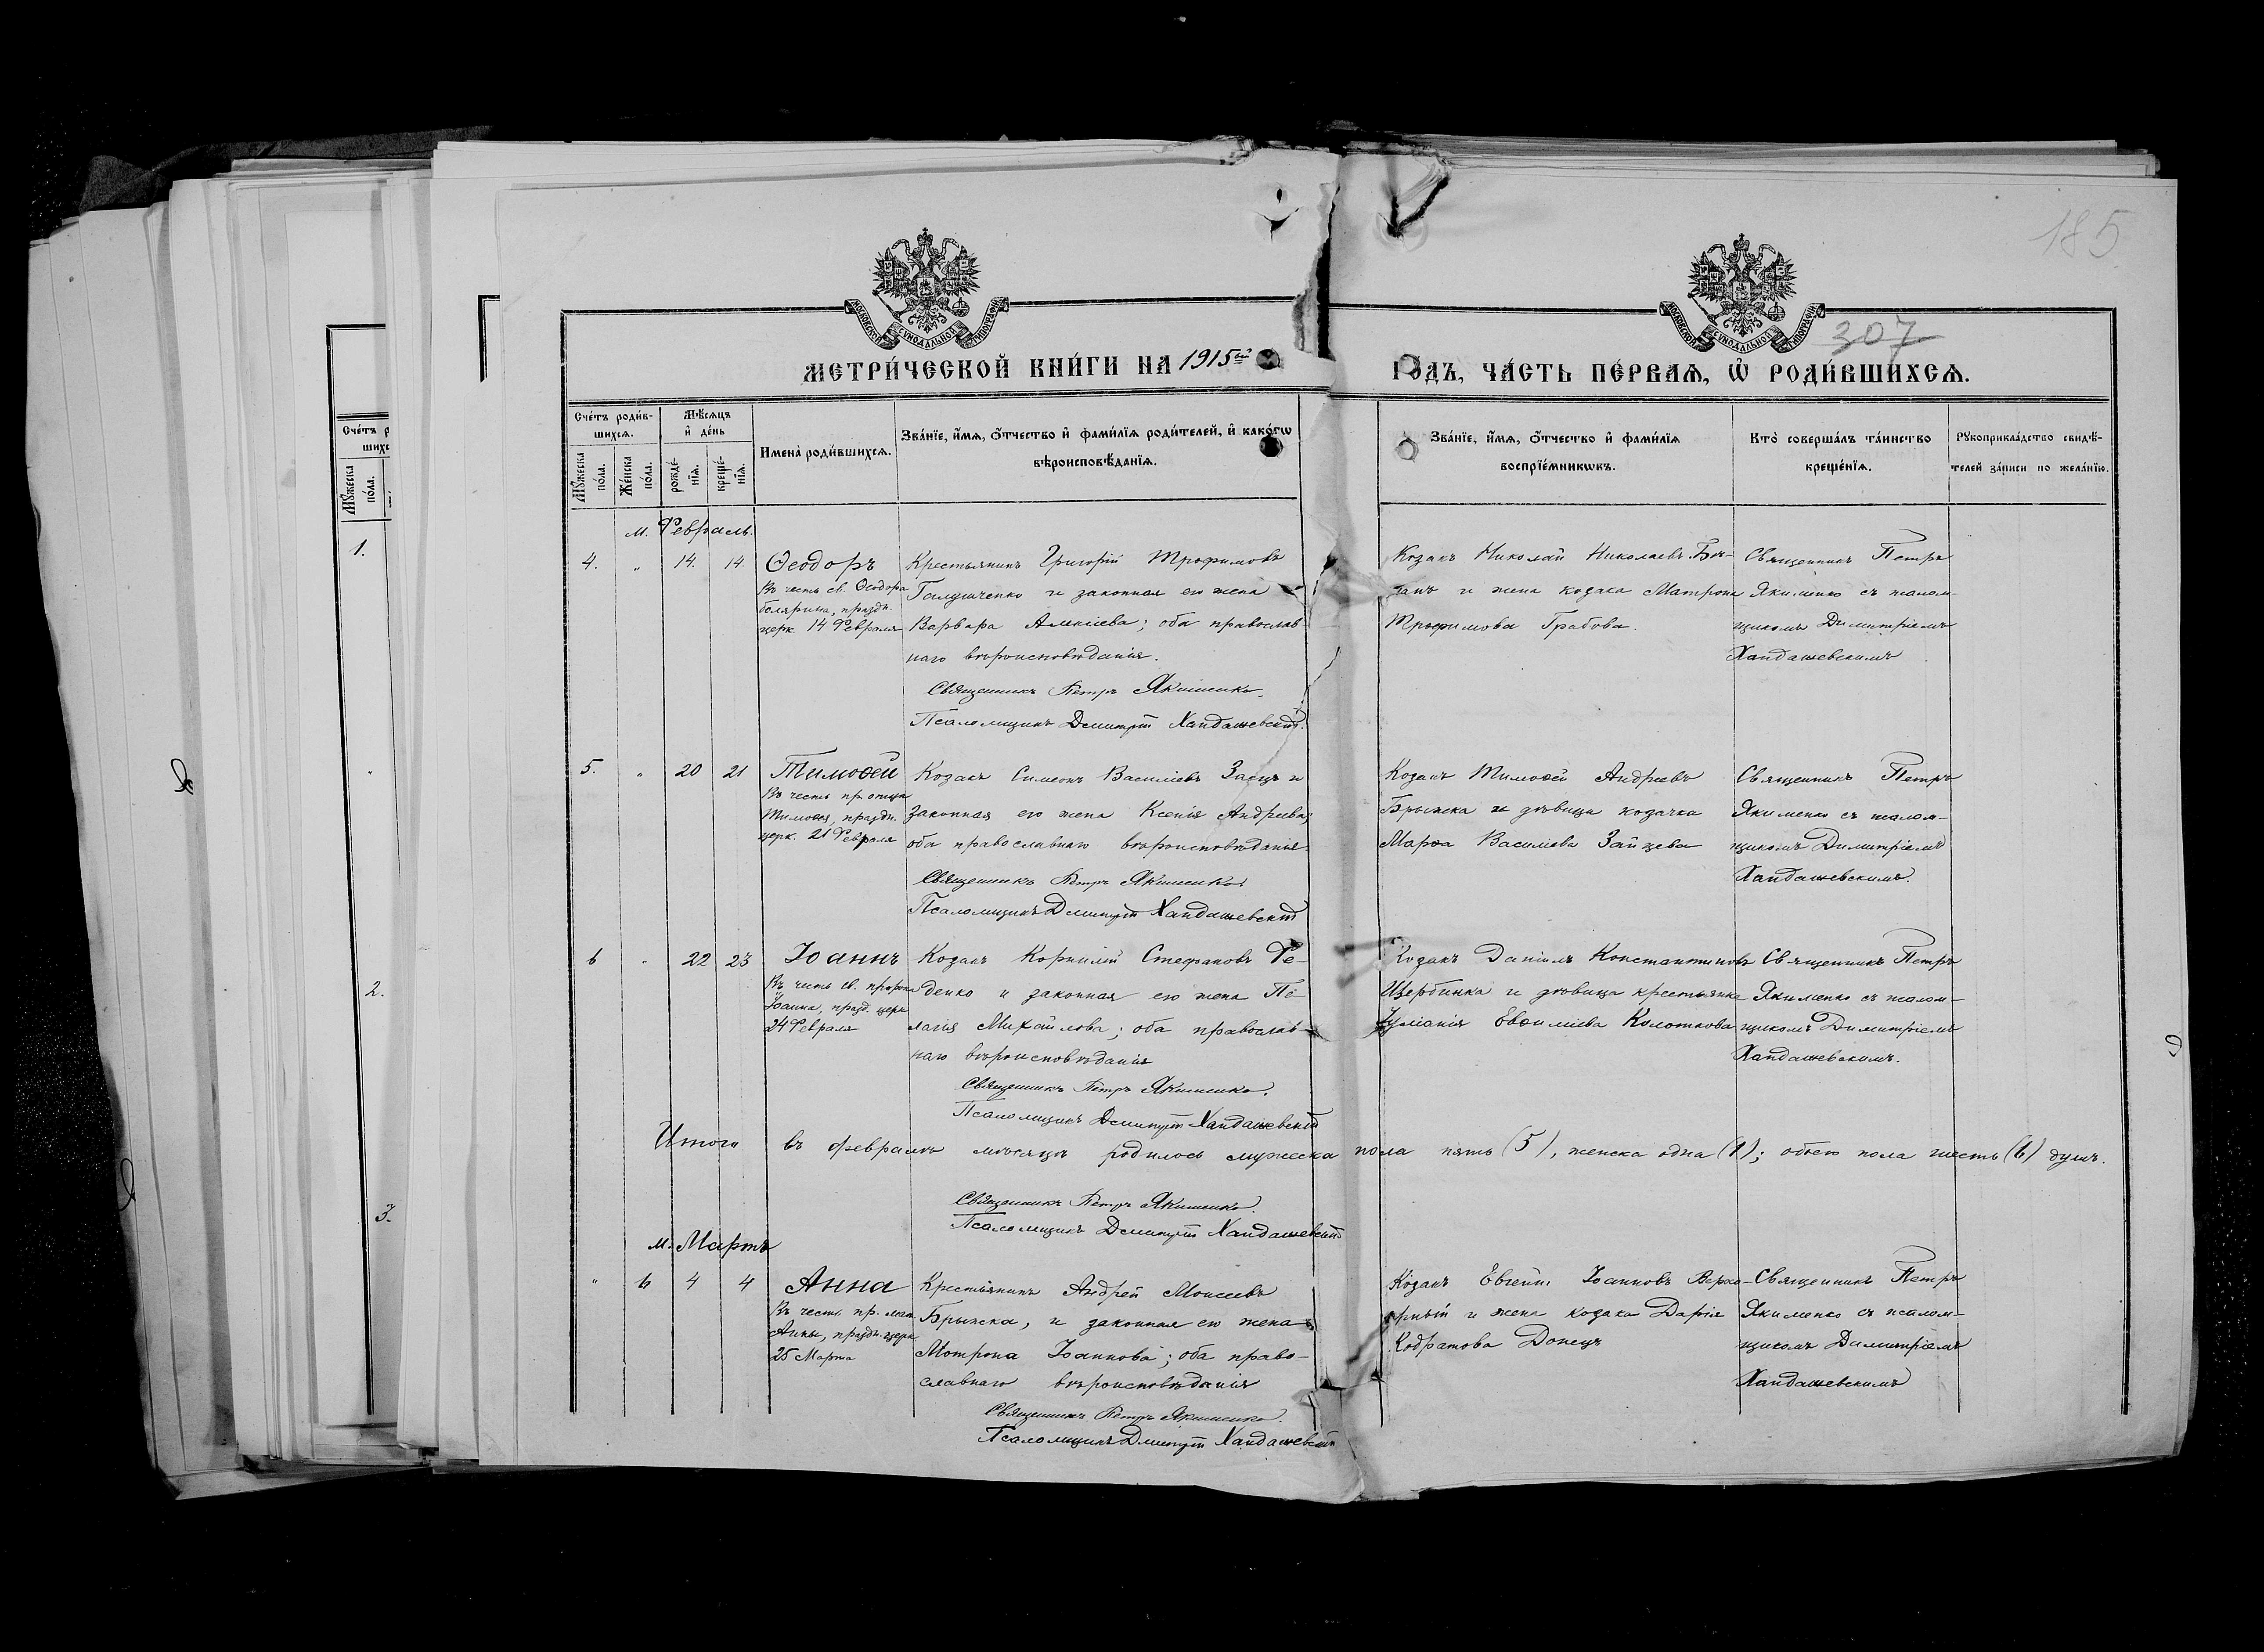 185
307
МОСКОВСКОЙ СѴНОДАЛЬНОЙ ТИПОГРАФІИ
МОСКОВСКОЙ СѴНОДАЛЬНОЙ ТИПОГРАФІИ
МЕТРИ́ЧЕСКОЙ КНИ́ГИ НА 1915ый ГОДЪ, ЧА́СТЬ ПЕ́РВАѦ, Ѽ РОДИ́ВШИХСѦ.
Сче́тъ роди́в-
шихсѧ.
Мꙋ́жеска по́ла.
Же́нска по́ла.
Мѣ́сѧцъ
и҆ де́нь
рожде́-
нїѧ.
креще́-
нїѧ.
Имена̀ роди́вшихсѧ.
Зва́нїе, и҆́мѧ, ѻ҆́тчество и҆ фами́лїѧ роди́телей, и҆ како́гѡ
вѣроисповѣ́данїѧ.
Зва́нїе, и҆́мѧ, ѻ҆́тчество и҆ фами́лїѧ
воспрїе́мникѡвъ.
Кто̀ соверша́лъ та́инство
креще́нїѧ.
Рꙋкоприкла́дство свидѣ́-
телей за́писи по жела́нїю.
м. Февраль.
4. " 14. 14. Ѳеодоръ
Въ честь св. Ѳеодора
болярина, праздн.
церк. 14 Февраля
Крестьянинъ Григорій Трофимовъ
Галушченко и законная его жена
Варвара Алексіева; оба православ-
наго вѣроисповѣданія.
Священникъ Петръ Якименко.
Псаломщикъ Дмитрій Хандашевскій.
Козакъ Николай Николаевъ
и жена козака Матрона
Трофимова Грабова.
Священникъ Петръ
Якименко съ псалом-
щикомъ Димитріемъ
Хандашевскимъ
5. " 20 21 Тимоѳей
Въ честь пр. отца
Тимоѳея, праздн.
церк. 21 Февраля
Козакъ Симеонъ Василіевъ Заецъ и
законная его жена Ксенія Андреева;
оба православнаго вѣроисповѣданія
Священникъ Петръ Якименко
Псаломщикъ Дмитрій Хандашевскій
Козакъ Тимоѳей Андреевъ
Брынска и дѣвица козачка
Марѳа Василіева Зайцева
Священникъ Петръ
Якименко съ псалом-
щикомъ Димитріемъ
Хандашевскимъ.
6 " 22 23 Іоаннъ
Въ честь св. пророка
Іоанна, празд. церк
24 Февраля
Козакъ Корнилій Стефановъ Фе-
денко и законная его жена Пе-
лагія Михайлова; оба православ-
наго вѣроисповѣданія
Священникъ Петръ Якименко.
Псаломщикъ Дмитрій Хандашевскій
Козакъ Даніилъ Константиновъ
Щербинка и дѣвица крестьянка
Іуліанія Евѳиміева Колоткова
Священникъ Петръ
Якименко съ псалом-
щикомъ Димитріемъ
Хандашевскимъ.
Итого въ февралѣ мѣсяцѣ родилось мужеска пола пять (5), женска одна (1); обоего пола шесть (6) душъ.
Священникъ Петръ Якименко.
Псаломщикъ Дмитрій Хандашевскій
м. Мартъ
" 6 4 4 Анна
Въ честь пр. мат.
Анны, праздн. церк
25 Марта
Крестьянинъ Андрей Моисеевъ
Брынска, и законная его жена
Мотрона Іоаннова; оба право-
славнаго вѣроисповѣданія
Священникъ Петръ Якименко.
Псаломщикъ Дмитрій Хандашевскій
Козакъ Евгеній Іоанновъ
и жена козака Дарія
Кодратова Донецъ
Священникъ Петръ
Якименко съ псалом-
щикомъ Димитріемъ
Хандашевскимъ
Сче́тъ р
шихс
Мꙋ́жеска по́ла.
1.
2.
3.